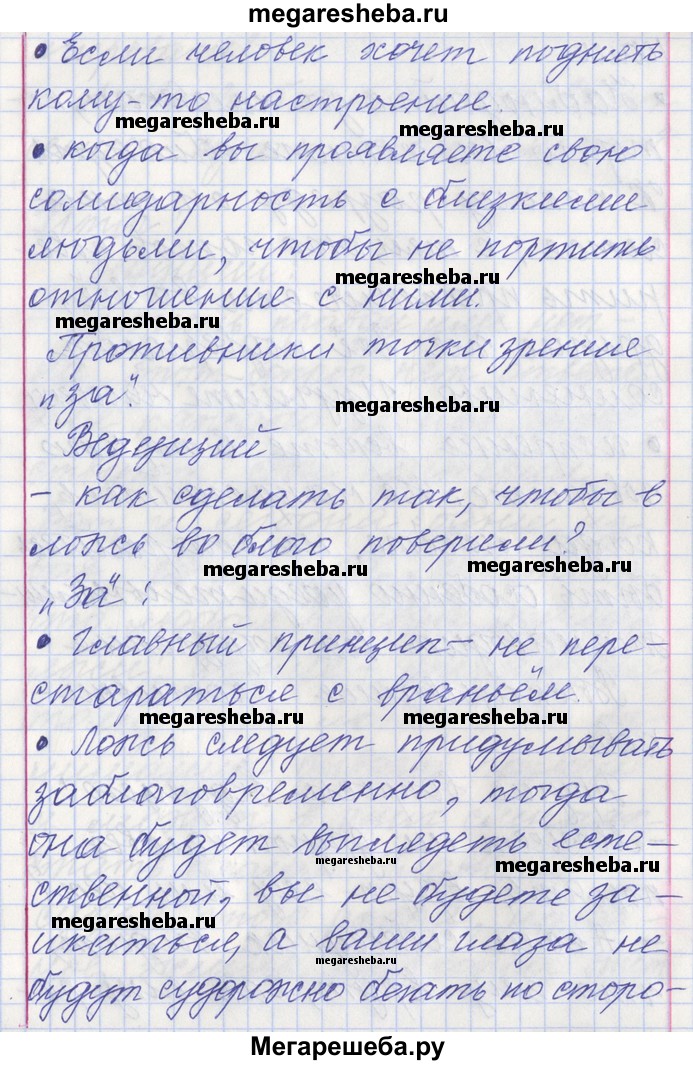 megaresheba.ru
• Если человек хочет поднять
кому-то настроение.
megaresheba.ru megaresheba.ru
• когда вы проявляете свою
солидарность с близкими
людьми, чтобы не портить
megaresheba.ru
отношения с ними.
megaresheba.ru
Противники точки зрение
megaresheba.ru
„за".
megaresheba.ru
Ведущий
- как сделать так, чтобы в
ложь во благо поверили?
megaresheba.ru megaresheba.ru
„За":
• Главный принцип - не пере-
стараться с враньём.
megaresheba.ru megaresheba.ru
• Ложь следует придумывать
заблаговременно, тогда
она будет выглядеть есте-
megaresheba.ru megaresheba.ru
ственной, вы не будете за-
megaresheba.ru
икаться, а ваши глаза не
megaresheba.ru
будут судорожно бегать по сторо-
Мегарешеба.ру